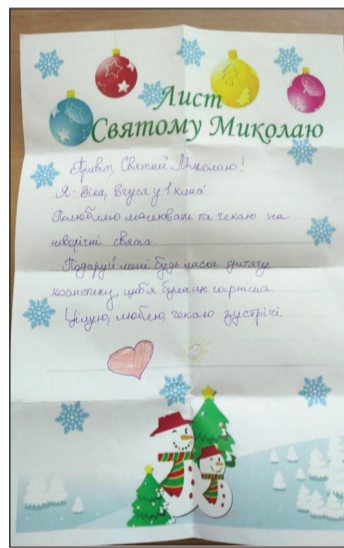 Лист
Святому Миколаю
Привіт, Святий Миколаю!
Я - Віка, вчуся у 1 класі
Полюбляю малювати та чекаю на
новорічні свята.
Подаруй мені будь ласка дитячу
косметику, щоб я була ще гарніша.
Цілую, люблю, чекаю зустрічі.